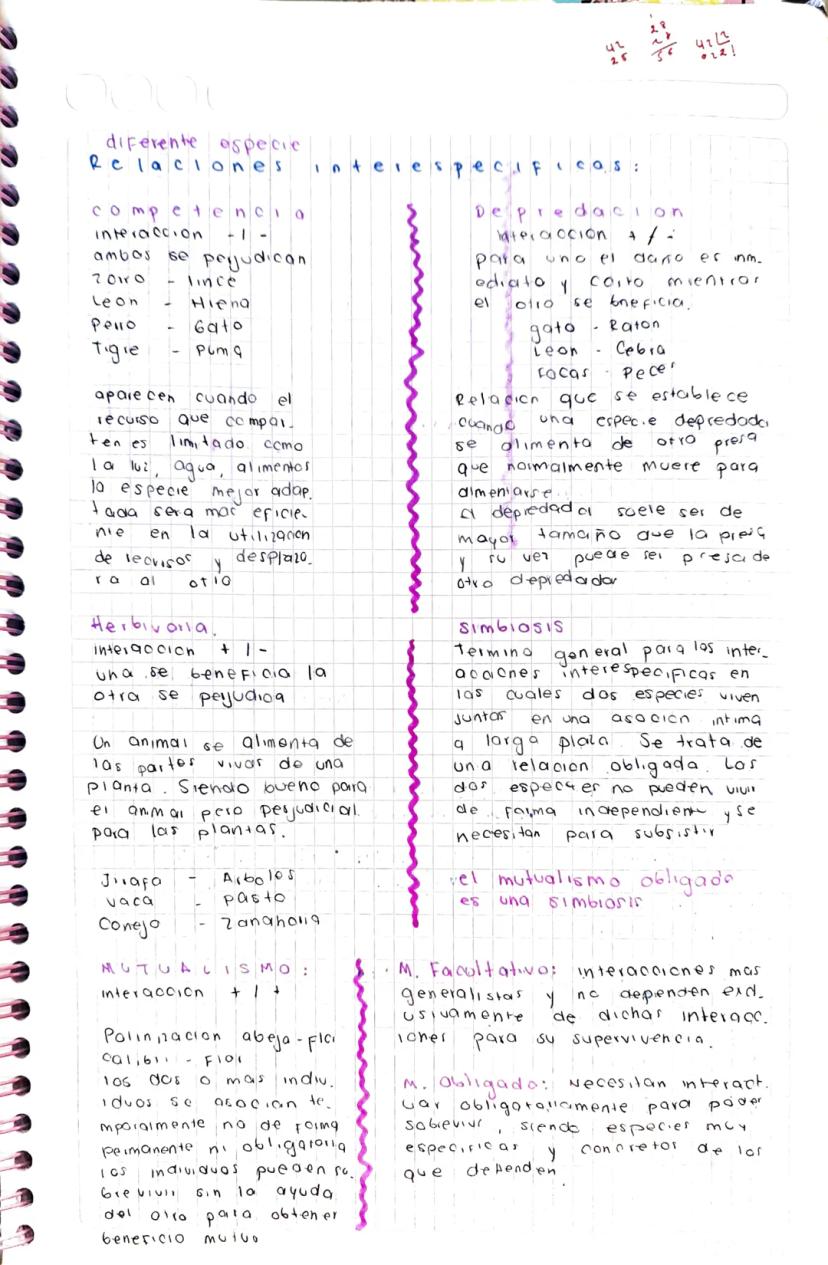 42
25
28
x 2
56
diferente especie
Relaciones interespecificas:
competencia
interaccion - | -
ambos se perjudican
Zorro - lince
Leon - Hiena
Perro - Gato
Tigre - Puma
aparecen cuando el
recurso que compar-
ten es limitado como
la luz, agua, alimentos
la especie mejor adap-
tada sera mas eficie-
nte en la utilizacion
de recursos y desplaza-
ra al otro
Depredacion
interaccion + / -
para uno el daño es inm-
ediato y corto mientras
el otro se bneficia.
gato - Raton
Leon - Cebra
focas - Peces
Relacion que se establece
cuando una especie depredador
se alimenta de otro presa
que normalmente muere para
almeniarse
el depredador suele ser de
mayor tamaño que la presa
y su vez puede ser presa de
otro depredador
Herbivoria.
interaccion + | -
una se beneficia la
otra se perjudica
Un animal se alimenta de
las partes vivas de una
planta. Siendo bueno para
el animal pero perjudicial
para las plantas.
Jirafa - Arboles
vaca - pasto
Conejo - Zanahoria
SIMBIOSIS
Termino general para las inter-
acciones interespecificas en
las cuales dos especies viven
juntas en una asocion intima
a largo plazo. Se trata de
una relacion obligada. Los
dos especies no pueden vivir
de forma independiente y se
necesitan para subsistir
el mutualismo obligado
es una simbiosis
MUTUALISMO:
interaccion + | +
Polinizacion abeja - Flor
calibri - Flor
los dos o mas indiv-
iduos se asocian te-
mporalmente no de forma
permanente ni obligatoria
los individuos pueden so-
brevivir sin la ayuda
del otro para obtener
beneficio mutuo
M. Facultativo: interacciones mas
generalistas y no dependen excl-
usivamente de dichas interacc-
iones para su supervivencia.
M. Obligado: Necesitan interact-
uar obligatoriamente para poder
sobrevivir, siendo especies muy
especificas y concretos de los
que dependen.